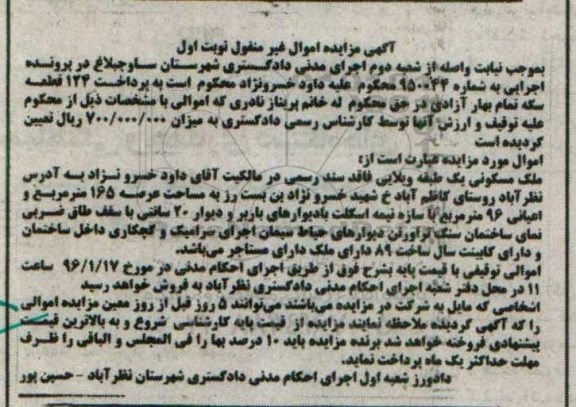 آگهی مزایده اموال غیر منقول نوبت اول
بموجب نیابت واصله از شعبه دوم اجرای مدنی دادگستری شهرستان ساوجبلاغ در پرونده
اجرایی به شماره ۹۵۰۰۴۴ محکوم علیه داود خسرونژاد محکوم است به پرداخت ۱۲۴ قطعه
سکه تمام بهار آزادی در حق محکوم له خانم پریناز نادری که اموالی با مشخصات ذیل از محکوم
علیه توقیف و ارزش آنها توسط کارشناس رسمی دادگستری به میزان ۷۰۰/۰۰۰/۰۰۰ ریال تعیین
گردیده است
اموال مورد مزایده عبارت است از:
ملک مسکونی یک طبقه ویلایی فاقد سند رسمی در مالکیت آقای داود خسرو نژاد به آدرس
نظرآباد روستای کاظم آباد خ شهید خسرو نژاد بن بست رز به مساحت عرصه ۱۶۵ مترمربع و
اعیانی ۹۶ مترمربع با سازه نیمه اسکلت بادیوارهای باربر و دیوار ۲۰ سانتی با سقف طاق ضربی
نمای ساختمان سنگ تراورتن دیوارهای حیاط سیمان اجرای سرامیک و گچکاری داخل ساختمان
و دارای کابینت سال ساخت ۸۹ دارای ملک دارای مستاجر می‌باشد.
اموالی توقیفی با قیمت پایه بشرح فوق از طریق اجرای احکام مدنی در مورخ ۹۶/۱/۱۷ ساعت
۱۱ در محل دفتر شعبه اجرای احکام مدنی دادگستری نظرآباد به فروش خواهد رسید
اشخاصی که مایل به شرکت در مزایده می‌باشند می‌توانند ۵ روز قبل از روز معین مزایده اموالی
را که آگهی گردیده ملاحظه نمایند مزایده از قیمت پایه کارشناسی شروع و به بالاترین قیمت
پیشنهادی فروخته خواهد شد برنده مزایده باید ۱۰ درصد بها را فی المجلس و الباقی را ظرف
مهلت حداکثر یک ماه پرداخت نماید.
دادورز شعبه اول اجرای احکام مدنی دادگستری شهرستان نظرآباد - حسین پور